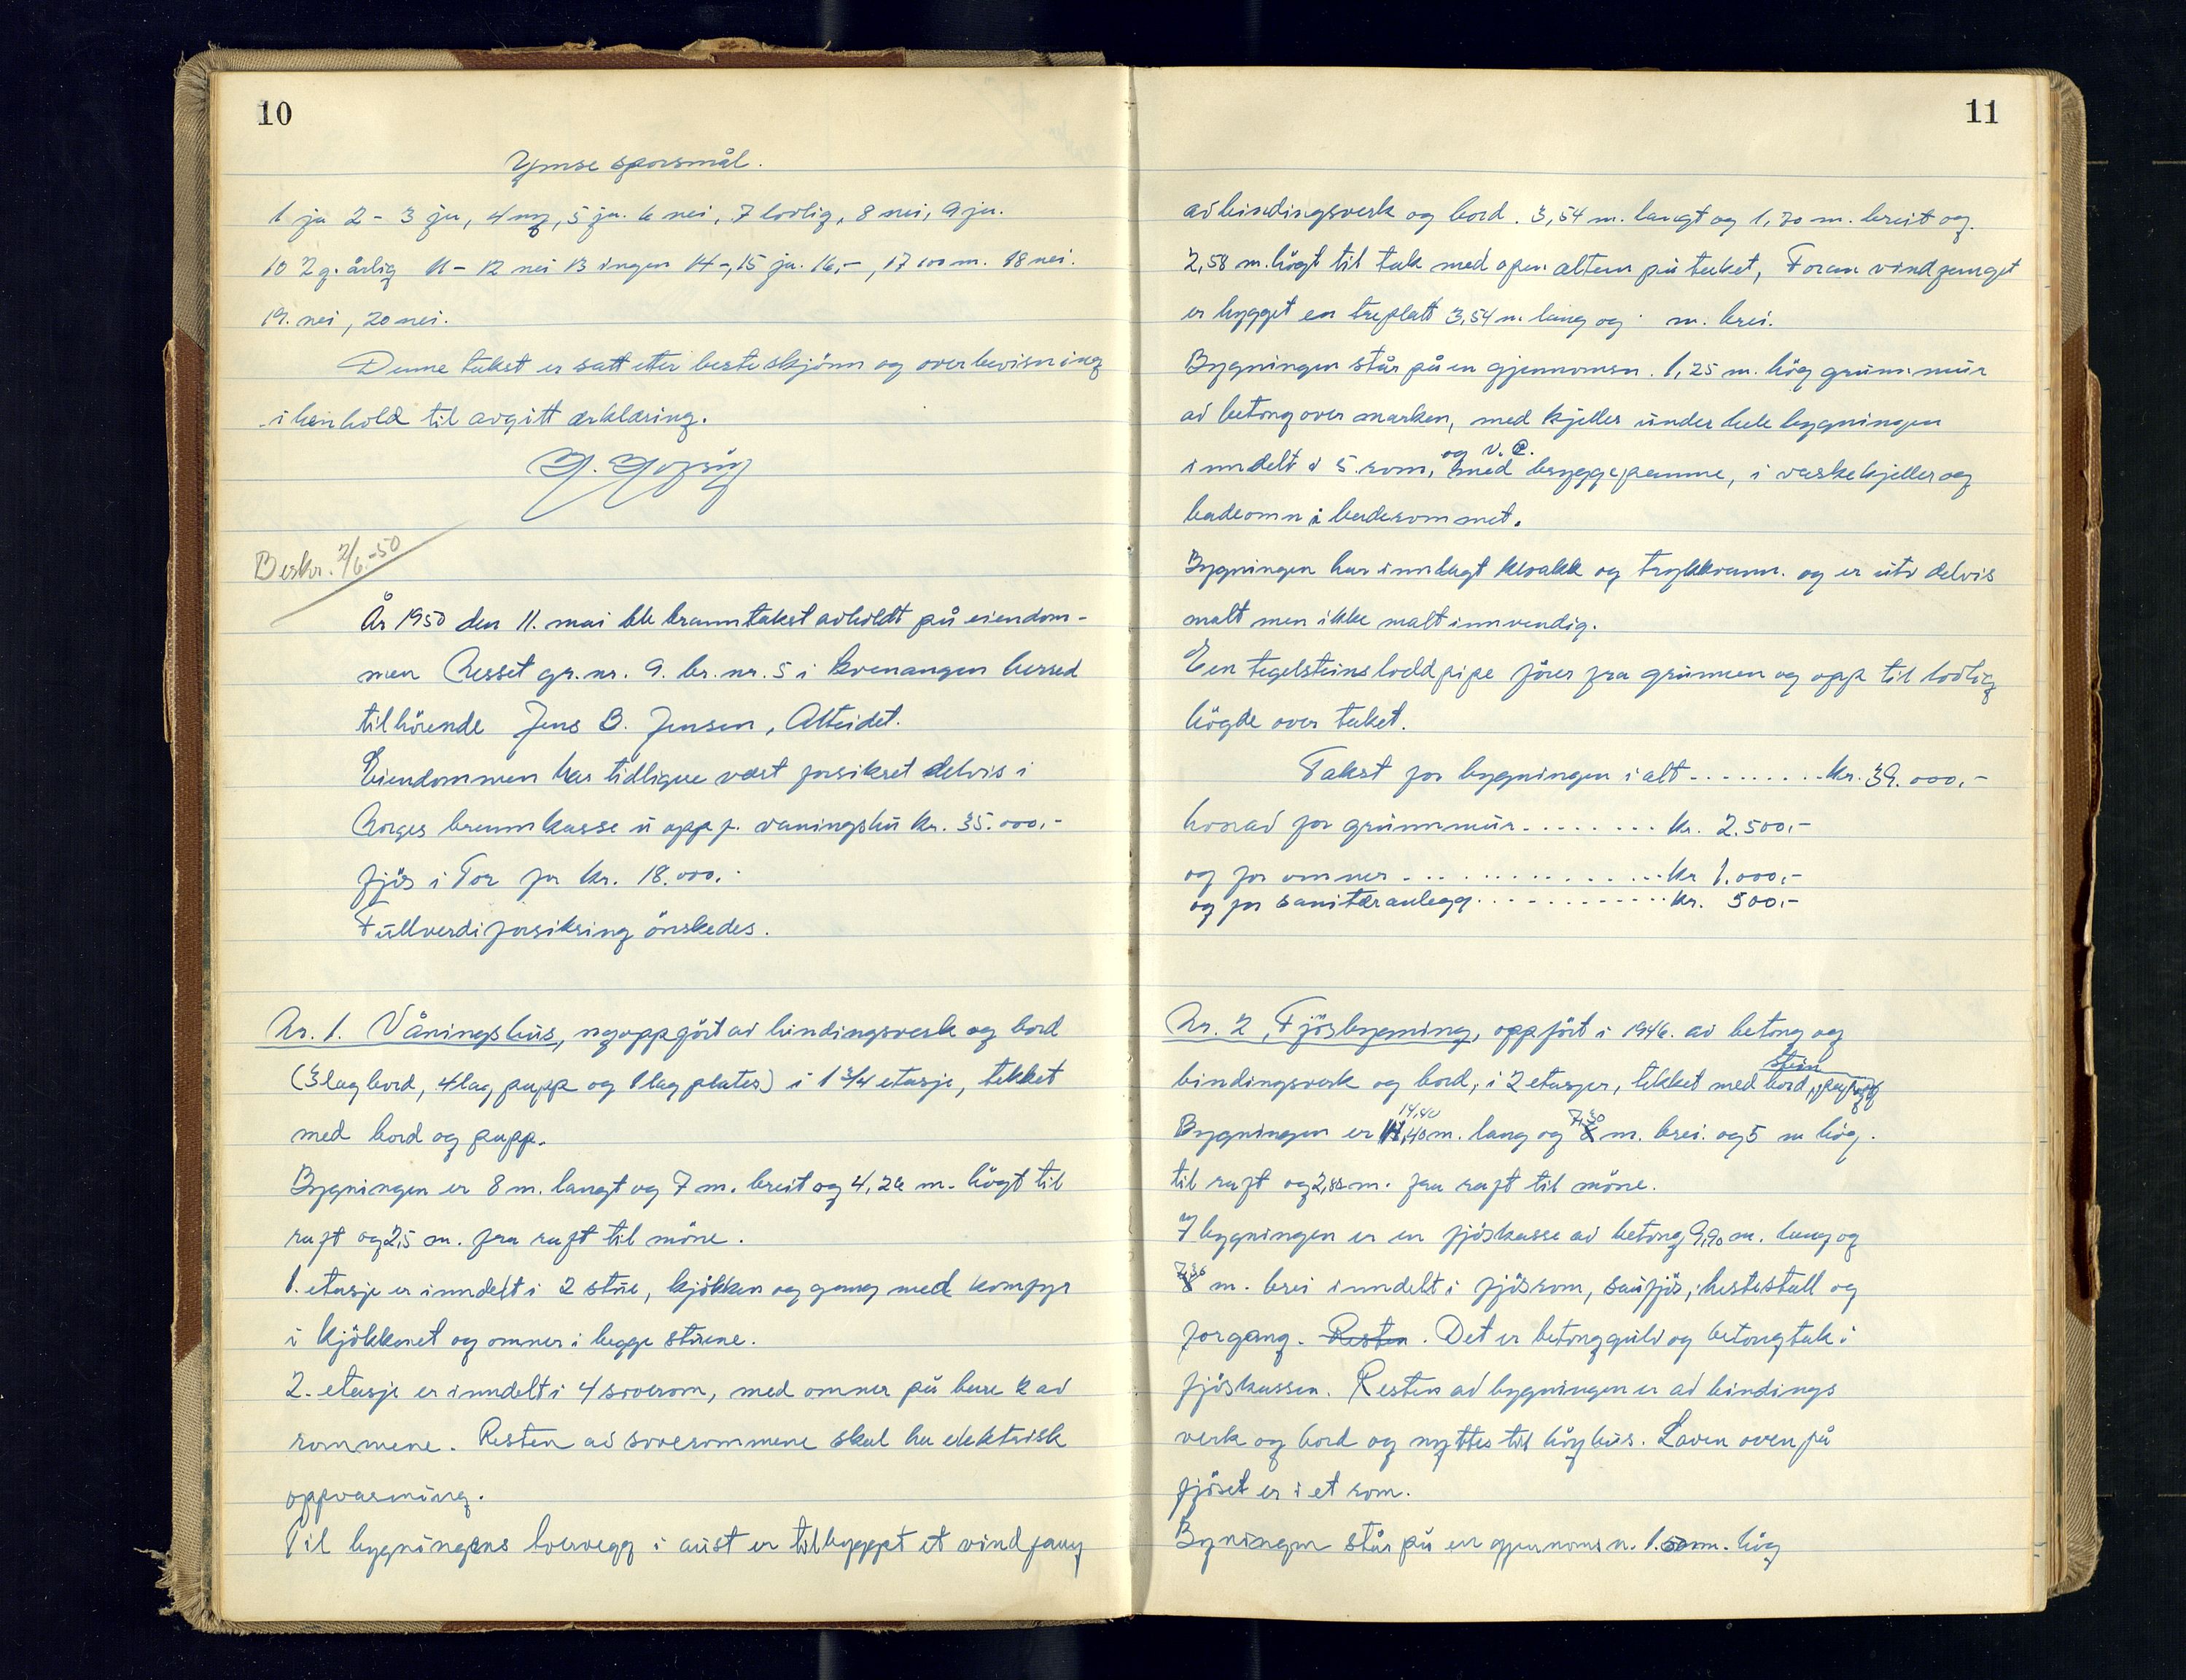 10
Ymse sporsmål.
1 ja 2 - 3 ja, 4 , 5 ja. 6 nei, 7 lovlig, 8 nei, 9 ja.
10 2 g. årlig 11 - 12 nei 13 ingen 14 -, 15 ja. 16, -, 17 100 m. 18 nei.
19. nei, 20 nei.
Denne takst er satt etter beste skjönn og overbevisning
i henhold til avgitt ærklæring.
Beskr. 2/6-50
År 1950 den 11. mai ble branntakst avholdt på eiendom-
men Nesset gr. nr. 9. br. nr. 5 i Kvenangen herred
tilhörende Jens B. Jensen, Alteidet.
Eiendommen har tidligue vært forsikret delvis i
Norges brannkasse u opp f. vaningshu kr. 35.000,-
fjös i Tor for kr. 18.000,-
Fullverdiforsikring önskedes.
Nr. 1. Våningshus, nyoppfört av bindingsverk og bord
(3 lag bord, 4 lag papp og 1 lag plater) i 1 3/4 etasje, tekket
med bord og papp.
Bygningen er 8 m. langt og 7 m. breit og 4,26 m. högt til
raft og 2,5 m. fra raft til möne.
1. etasje er inndelt i 2 stue, kjökken og gang med komfyr
i kjökkenet og omner i begge stuene.
2. etasje er inndelt i 4 soverom, med omner på bare 2 av
rommene. Resten av soverommene skal ha elektrisk
oppvarming.
Til bygningens tverrvegg i aust er tilbyggt et vindfang
11
av bindingsverk og bord. 3,54 m. langt og 1,70 m. breit og
2,58 m. högt til tak med open altan på taket, Foran vindfanget
er bygget en treplatt 3,54 m. lang og m. brei.
Bygningen står på en gjennomsn. 1,25 m. hög grunnmur
av betong over marken, med kjeller under hele bygningen
inndelt i 5 rom, og v. c. med bryggepanne, i vaskekjeller og
badeomn i baderommet.
Bygningen har innlagt kloakk og trykkvann. og er utv delvis
malt men ikke malt innvendig.
Een tegelsteins loddpipe förer fra grunnen og opp til lovlig
högde over taket.
Takst for bygningen i alt . . . . . . . . . kr. 39.000,-
hvorav for grunnmur . . . . . . . . kr. 2.500,-
og for omner . . . . . . . . . . . . . . kr 1.000,-
og for sanitæranlegg . . . . . . . . . . . . kr. 500,-
Nr. 2, Fjösbygning, oppfört i 1946. av betong og
bindingsverk og bord, i 2 etasjer, tekket med bord, stein
Bygningen er 14,40 m. lang og 7,30 m. brei. og 5 m hög.
til raft og 2,88 m. fra raft til möne.
I bygningen er en fjöskasse av betong 9,90 m. lang og
7,30 m. brei inndelt i fjösrom, saufjös, hestestall og
forgang. Resten. Det er betonggulv og betongtak i
fjöskassen. Resten av bygningen er av bindings
verk og bord og nyttes til höyhus. Laven oven på
fjöset er i et rom.
Bygningen står på en gjennomsn. 1.50 m. hög